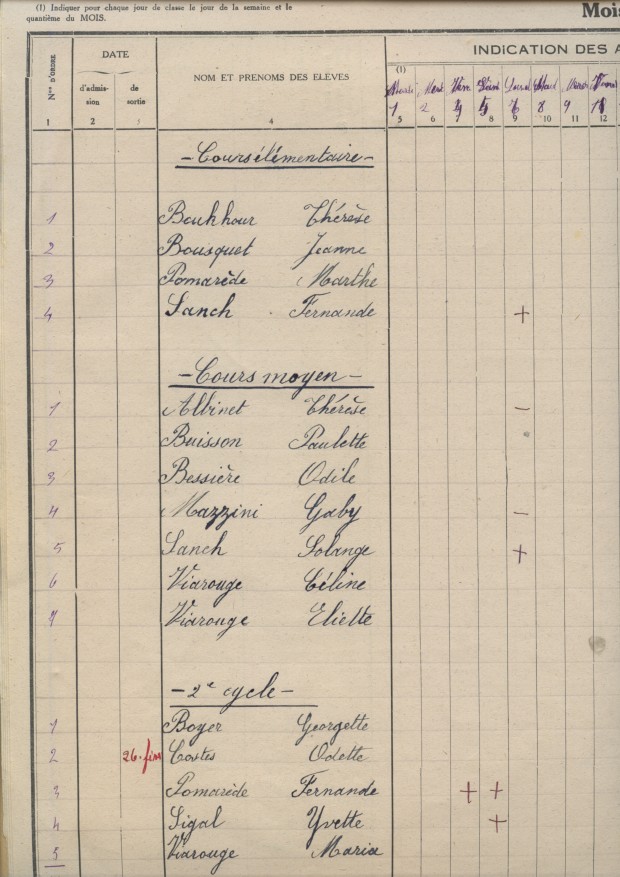 (1) Indiquer pour chaque jour de classe le jour de la semaine et le
quantième du MOIS.
Mois
Nos D'ORDRE
DATE
d'admis-
sion
de
sortie
NOM ET PRENOMS DES ELÈVES
INDICATION DES A
(1)
1 2
1 2 3 4 5 6 7 8 9 10 11 12
8 9
- Cours élémentaire -
1 Boukhour Thérèse
2 Bousquet Jeanne
3 Pomarède Marthe
4 Sanch Fernande +
- Cours moyen -
1 Albinet Thérèse -
2 Buisson Paulette
3 Bessière Odile
4 Mazzini Gaby -
5 Sanch Solange +
6 Viarouge Céline
7 Viarouge Eliette
- 2e cycle -
1 Boyer Georgette
2 26. Costes Odette
3 Pomarède Fernande + +
4 Sigal Yvette +
5 Viarouge Maria